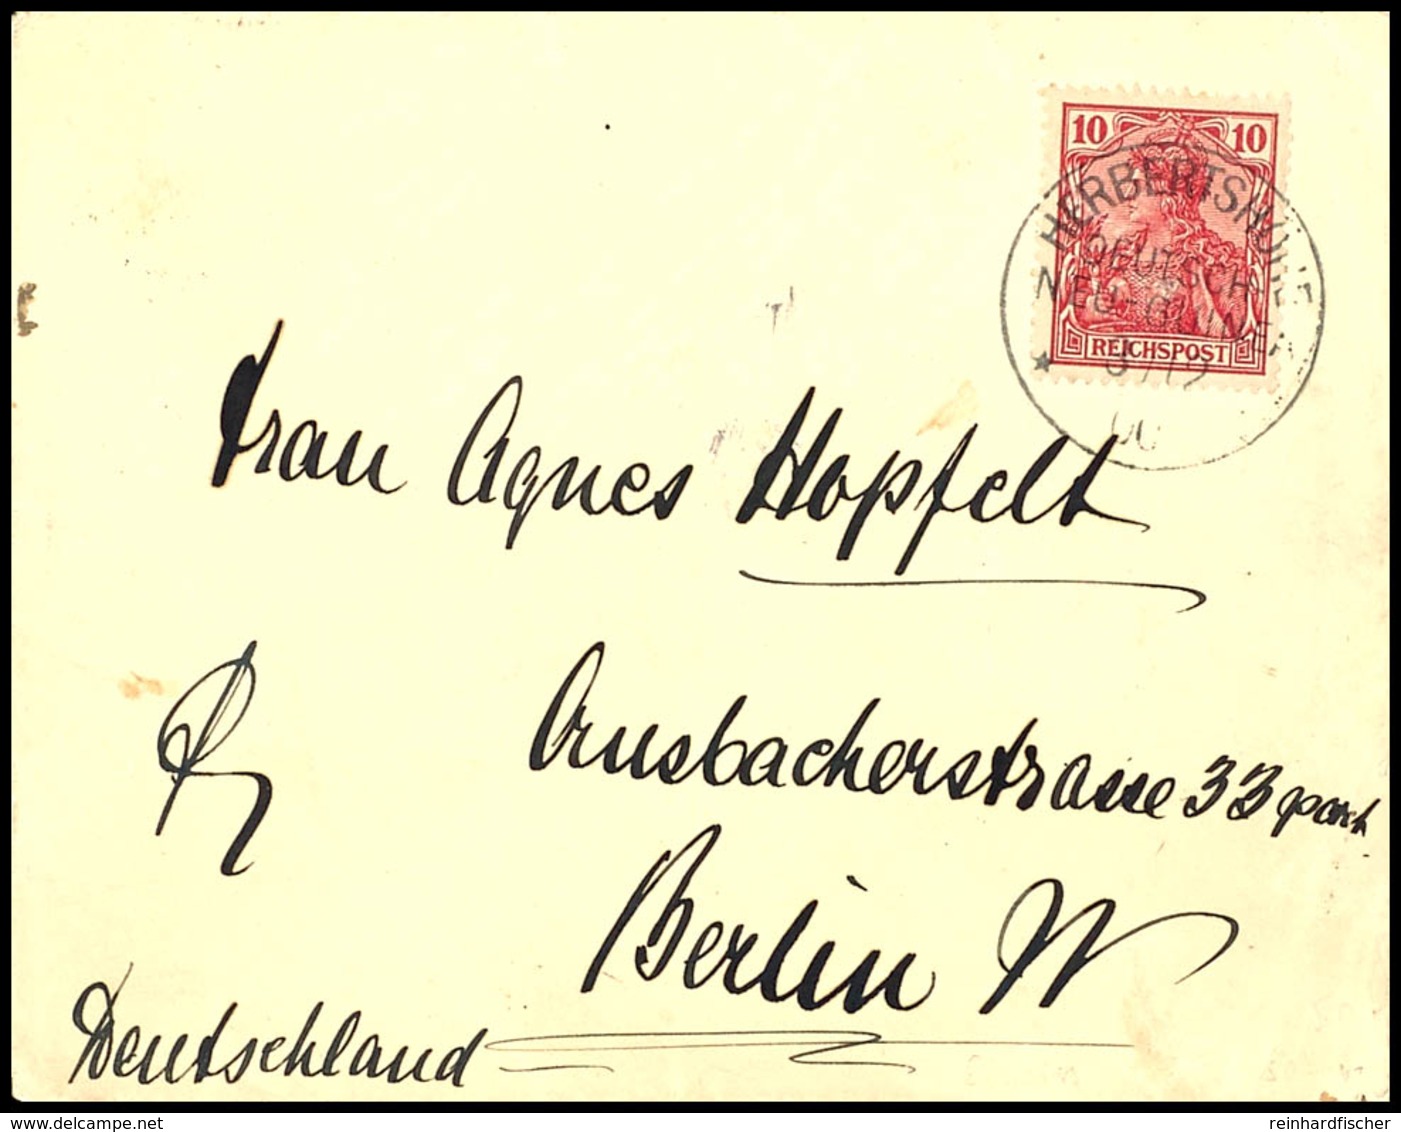 10 10
HERBERTSHÖHE
DEUTSCH-
NEU-GUINEA
REICHSPOST
Frau Agnes Hopfelt
Ansbacherstrasse 33 part
Berlin W
Deutschland
www.delcampe.net
reinhardfischer